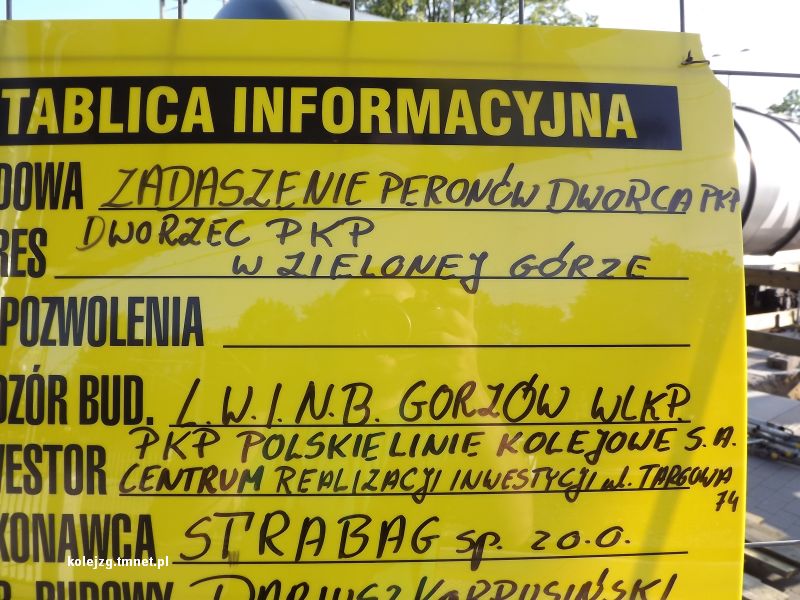 TABLICA INFORMACYJNA
DOWA ZADASZENIE PERONÓW DWORCA PKP
DWORZEC PKP
RES W ZIELONEJ GÓRZE
POZWOLENIA
DZÓR BUD. L.W.I.N.B. GORZÓW WLKP.
PKP POLSKIE LINIE KOLEJOWE S.A.
VESTOR CENTRUM REALIZACJI INWESTYCJI ul. TARGOWA
74
KONAWCA STRABAG sp. zo.o.
kolejzg.tmnet.pl
BUDOWY DARIUSZ KORPUSIŃSKI